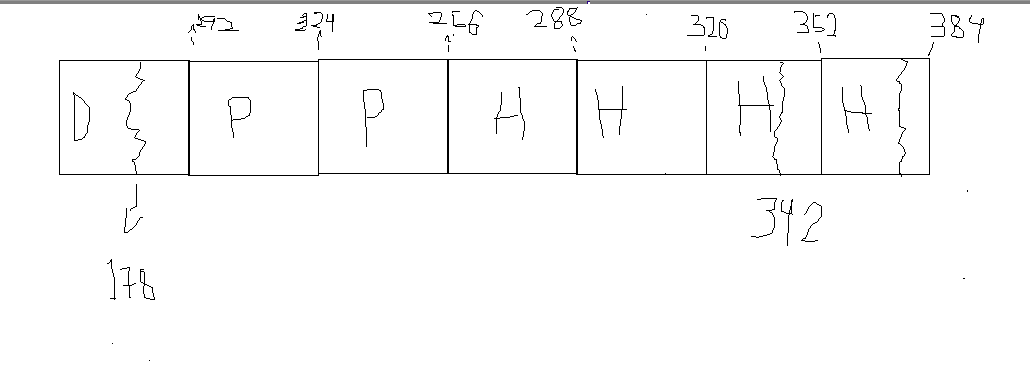 192 224 256 288 320 352 384
D P P H H H H
342
178